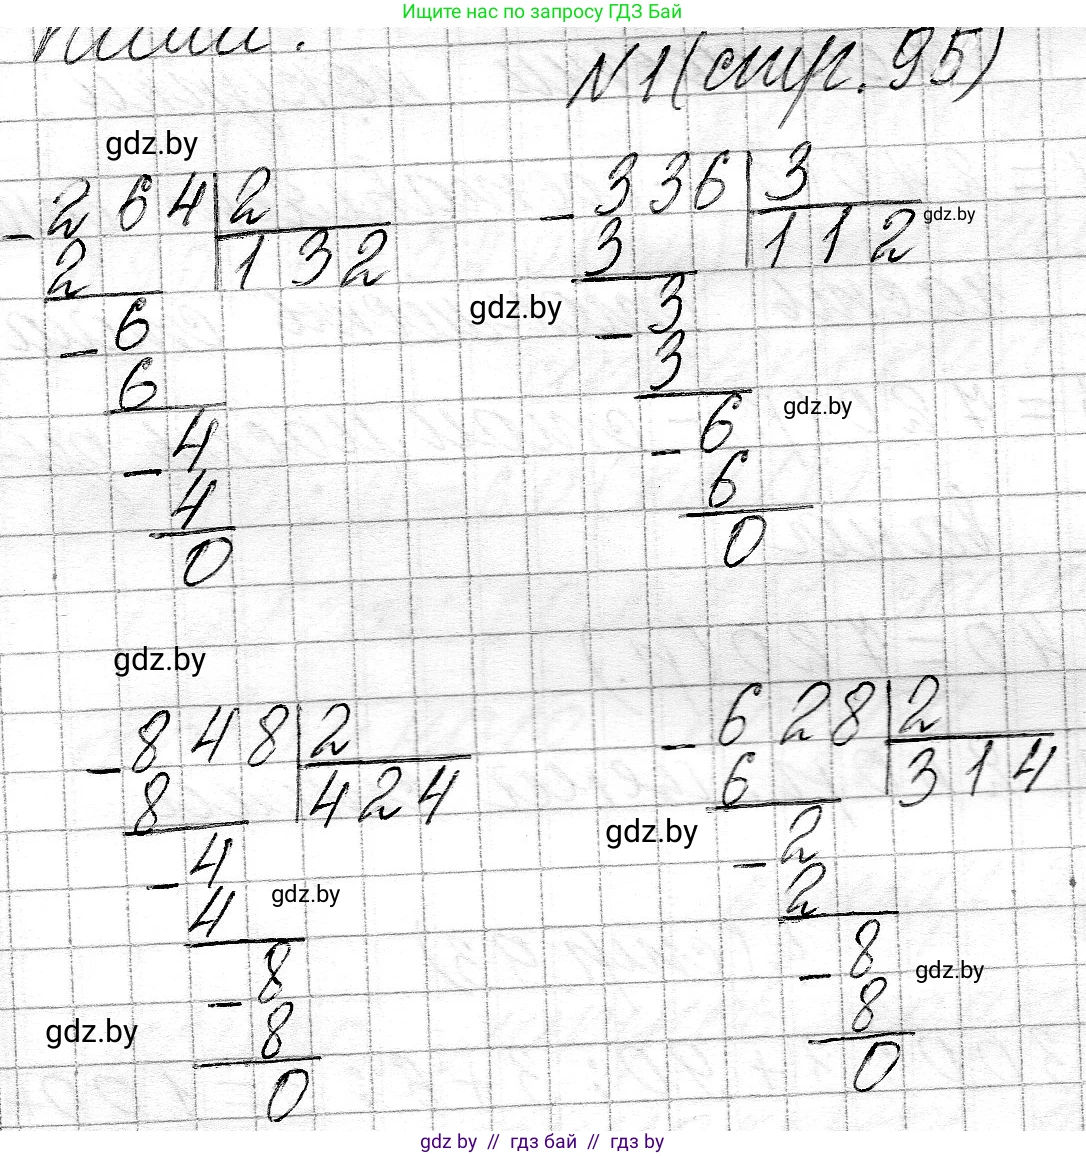 Ищите нас по запросу ГДЗ Бай
N1 (стр. 95)
gdz.by
- 264 | 2
2 | 132
- 6
6
- 4
4
0
- 336 | 3
3 | 112
gdz.by
gdz.by
- 3
3
gdz.by
- 6
6
0
gdz.by
- 848 | 2
8 | 424
- 4
4
gdz.by
- 8
8
gdz.by
0
- 628 | 2
6 | 314
gdz.by
- 2
2
- 8
gdz.by
8
0
gdz by // гдз бай // гдз by